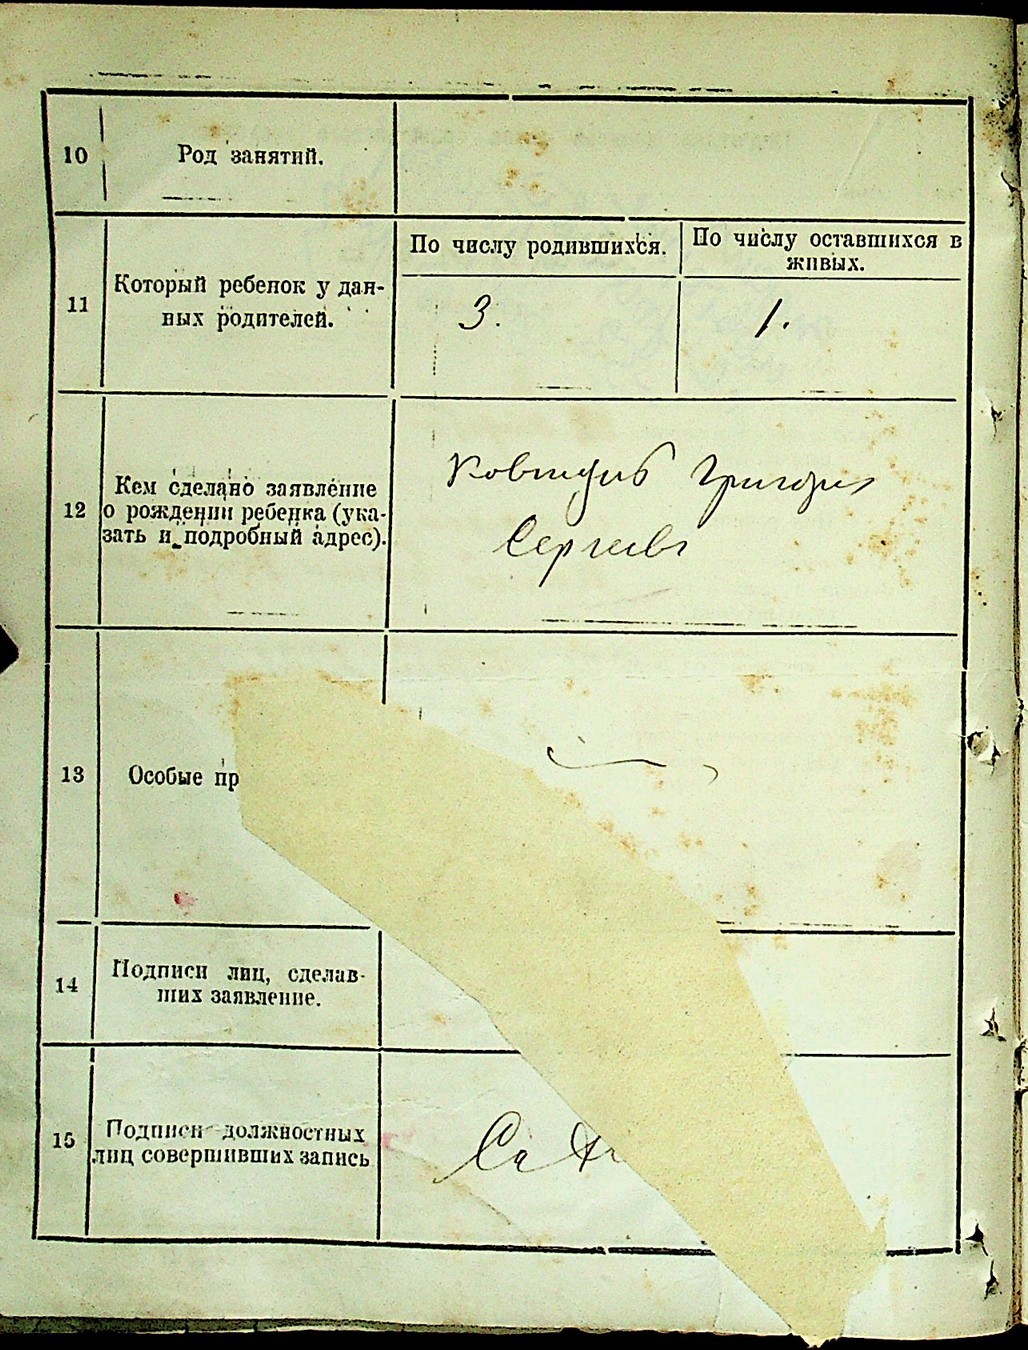 10
Род занятий.
11
Который ребенок у дан-
ных родителей.
По числу родившихся.
По числу оставшихся в
живых.
3.
1.
12
Кем сделано заявление
о рождении ребенка (ука-
зать и подробный адрес).
Григорий
Сергеев
13
Особые пр
14
Подписи лиц, сделав-
ших заявление.
15
Подписи должностных
лиц совершивших запись